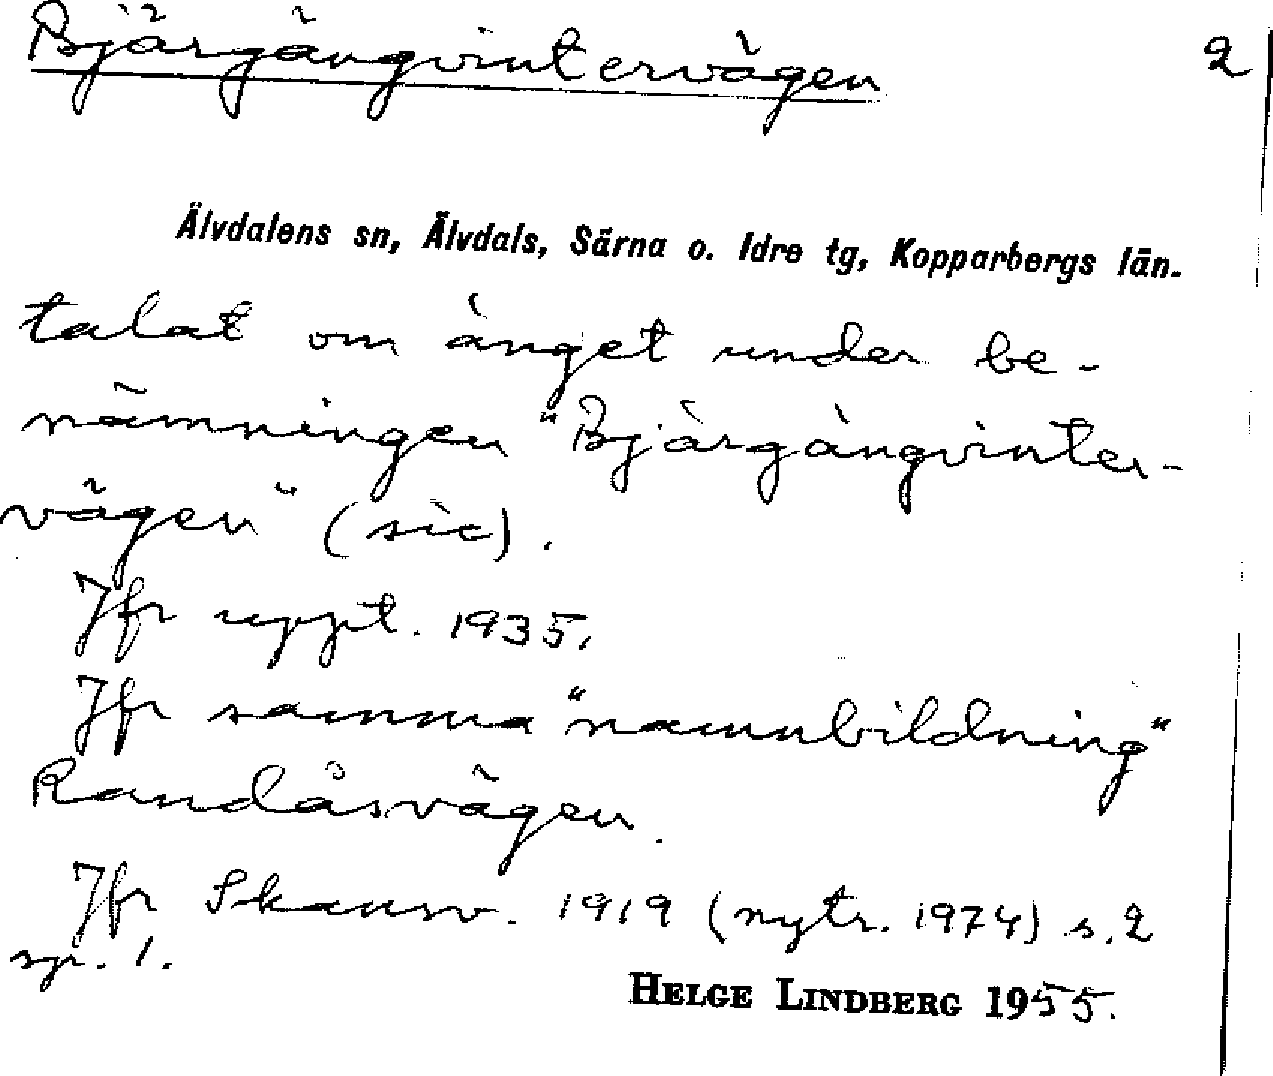 Bjärgångvintervägen 2
Älvdalens sn, Älvdals, Särna o. Idre tg, Kopparbergs län.
talat om ånget under be-
nämningen "Bjärgångvinter-
vägen" (sic).
Jfr uppt. 1935.
Jfr samma "namnbildning"
Randåsvägen.
Jfr Skansv. 1919 (nytr. 1974) s. 2
sp. 1.
HELGE LINDBERG 1955.